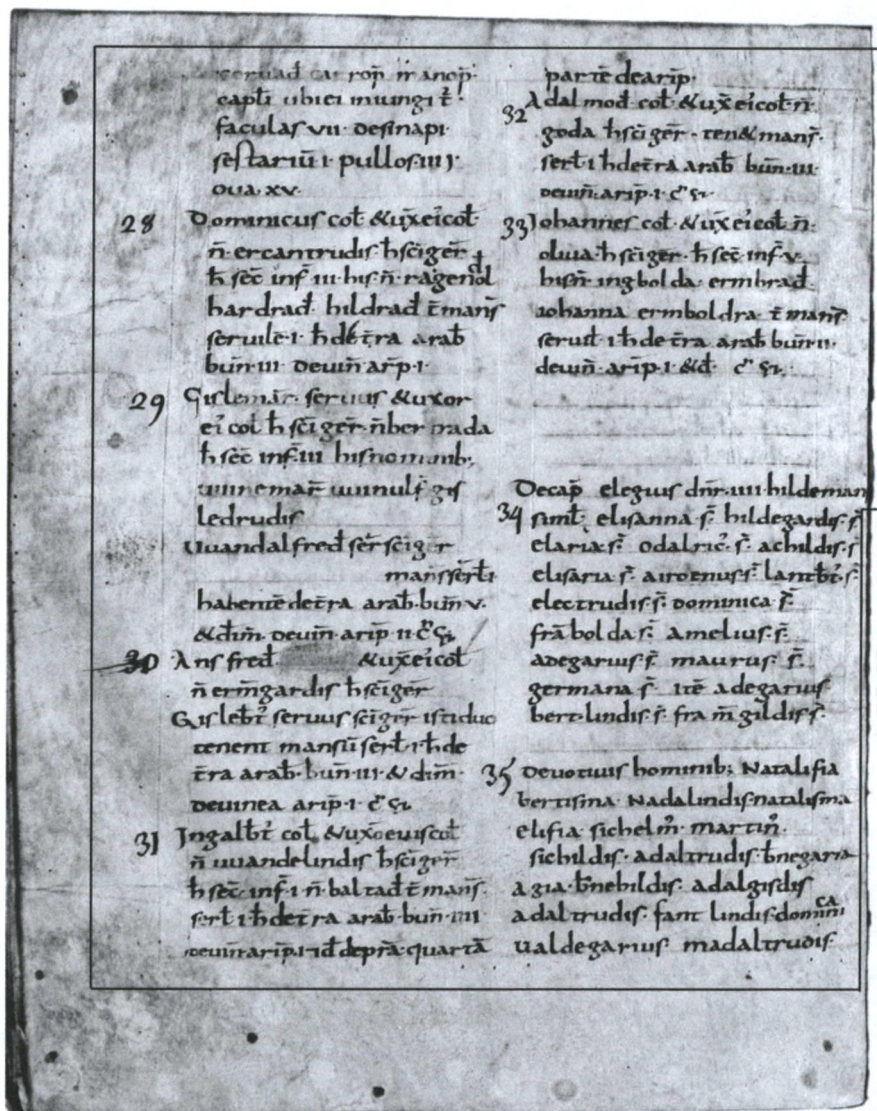 carrop manop
capti ubi ei iniungit̄
faculas vii · de sinapi
sestariū i · pullos · iii ·
ova · xv ·
28 Dominicus col̄ · & ux̄ ei' col̄
n̄ · ercantrudis · h̄ sc̄i ger̄
h̄ sec̄ inf̄ · iii · his · n̄ · ragenol
hardrad̄ · hildrad̄ · t̄ mans̄
servile · i · h̄ de t̄ra arab̄
bun̄ · iii · de vin̄ · arip̄ · i ·
29 Gislemar̄ · servus & uxor
ei' col̄ h̄ sc̄i ger̄ · n̄ ber nada
h̄ sec̄ inf̄ · iii his nominib;
winemar̄ winulf̄ · gis
ledrudis
Uuandalfred ser̄ sc̄i ger̄
mans̄ serl̄ i
habente de t̄ra arab̄ · bun̄ · v ·
& dim̄ · de vin̄ arip̄ · ii · c̄
30 Ansfred̄ & ux̄ ei' col̄
n̄ ermgardis h̄ sc̄i ger̄
Gislebt̄ servus sc̄i ger̄ isti duo
tenent mansū serl̄ · i · h̄ de
t̄ra arab̄ · bun̄ · iii · & dim̄ ·
de vinea arip̄ · i · c̄
31 Ingalbt̄ col̄ & uxor eius col̄
n̄ uuandelindis h̄ sc̄i ger̄
h̄ sec̄ · inf̄ · i · n̄ · baltad̄ t̄ mans̄ ·
serl̄ · i · h̄ de t̄ra arab̄ · bun̄ · iiii ·
de vin̄ arip̄ · i · id̄ de pra · quartā
partē de arip̄ ·
32 Adalmod̄ · col̄ · & ux̄ ei' col̄ · n̄ ·
goda h̄ sc̄i ger̄ · ten& mans̄ ·
serl̄ · i h̄ de t̄ra arab̄ bun̄ · iii ·
de vin̄ · arip̄ · i · c̄
33 Iohannes col̄ · & ux̄ ei' col̄ · n̄ ·
oliva · h̄ sc̄i ger · h̄ sec̄ · inf̄ · v ·
his n̄ · ingbolda · ermbrad̄
iohanna ermboldra · t̄ mans̄ ·
servil̄ · i · h̄ de t̄ra arab̄ bun̄ · ii ·
de vin̄ · arip̄ · i · & d̄ · c̄
De cap̄ elegius dn̄r · iiii · hildeman
34 simil̄ · elisanna · s̄ · hildegardis · s̄
elaria · s̄ · odalric' · s̄ · achildis · s̄
elisaria s̄ · airoenus · s̄ · lantbt̄ · s̄ ·
electrudis · s̄ · dominica · s̄ ·
frābolda · s̄ · amelius · s̄ ·
adegarius · s̄ · maurus · s̄ ·
germana · s̄ · itē adegarius
bertlindis · s̄ · fram̄gildis · s̄ ·
35 De votivis hominib; Natalifia
bertisma · Nadalindis · natalisma
elifia sichelm̄ · martin̄ ·
sichildis · adaltrudis · b̄negaria
agia · b̄nehildis · adalgisdis
adaltrudis · fantlindis · dominica
Ualdegarius madaltrudis ·